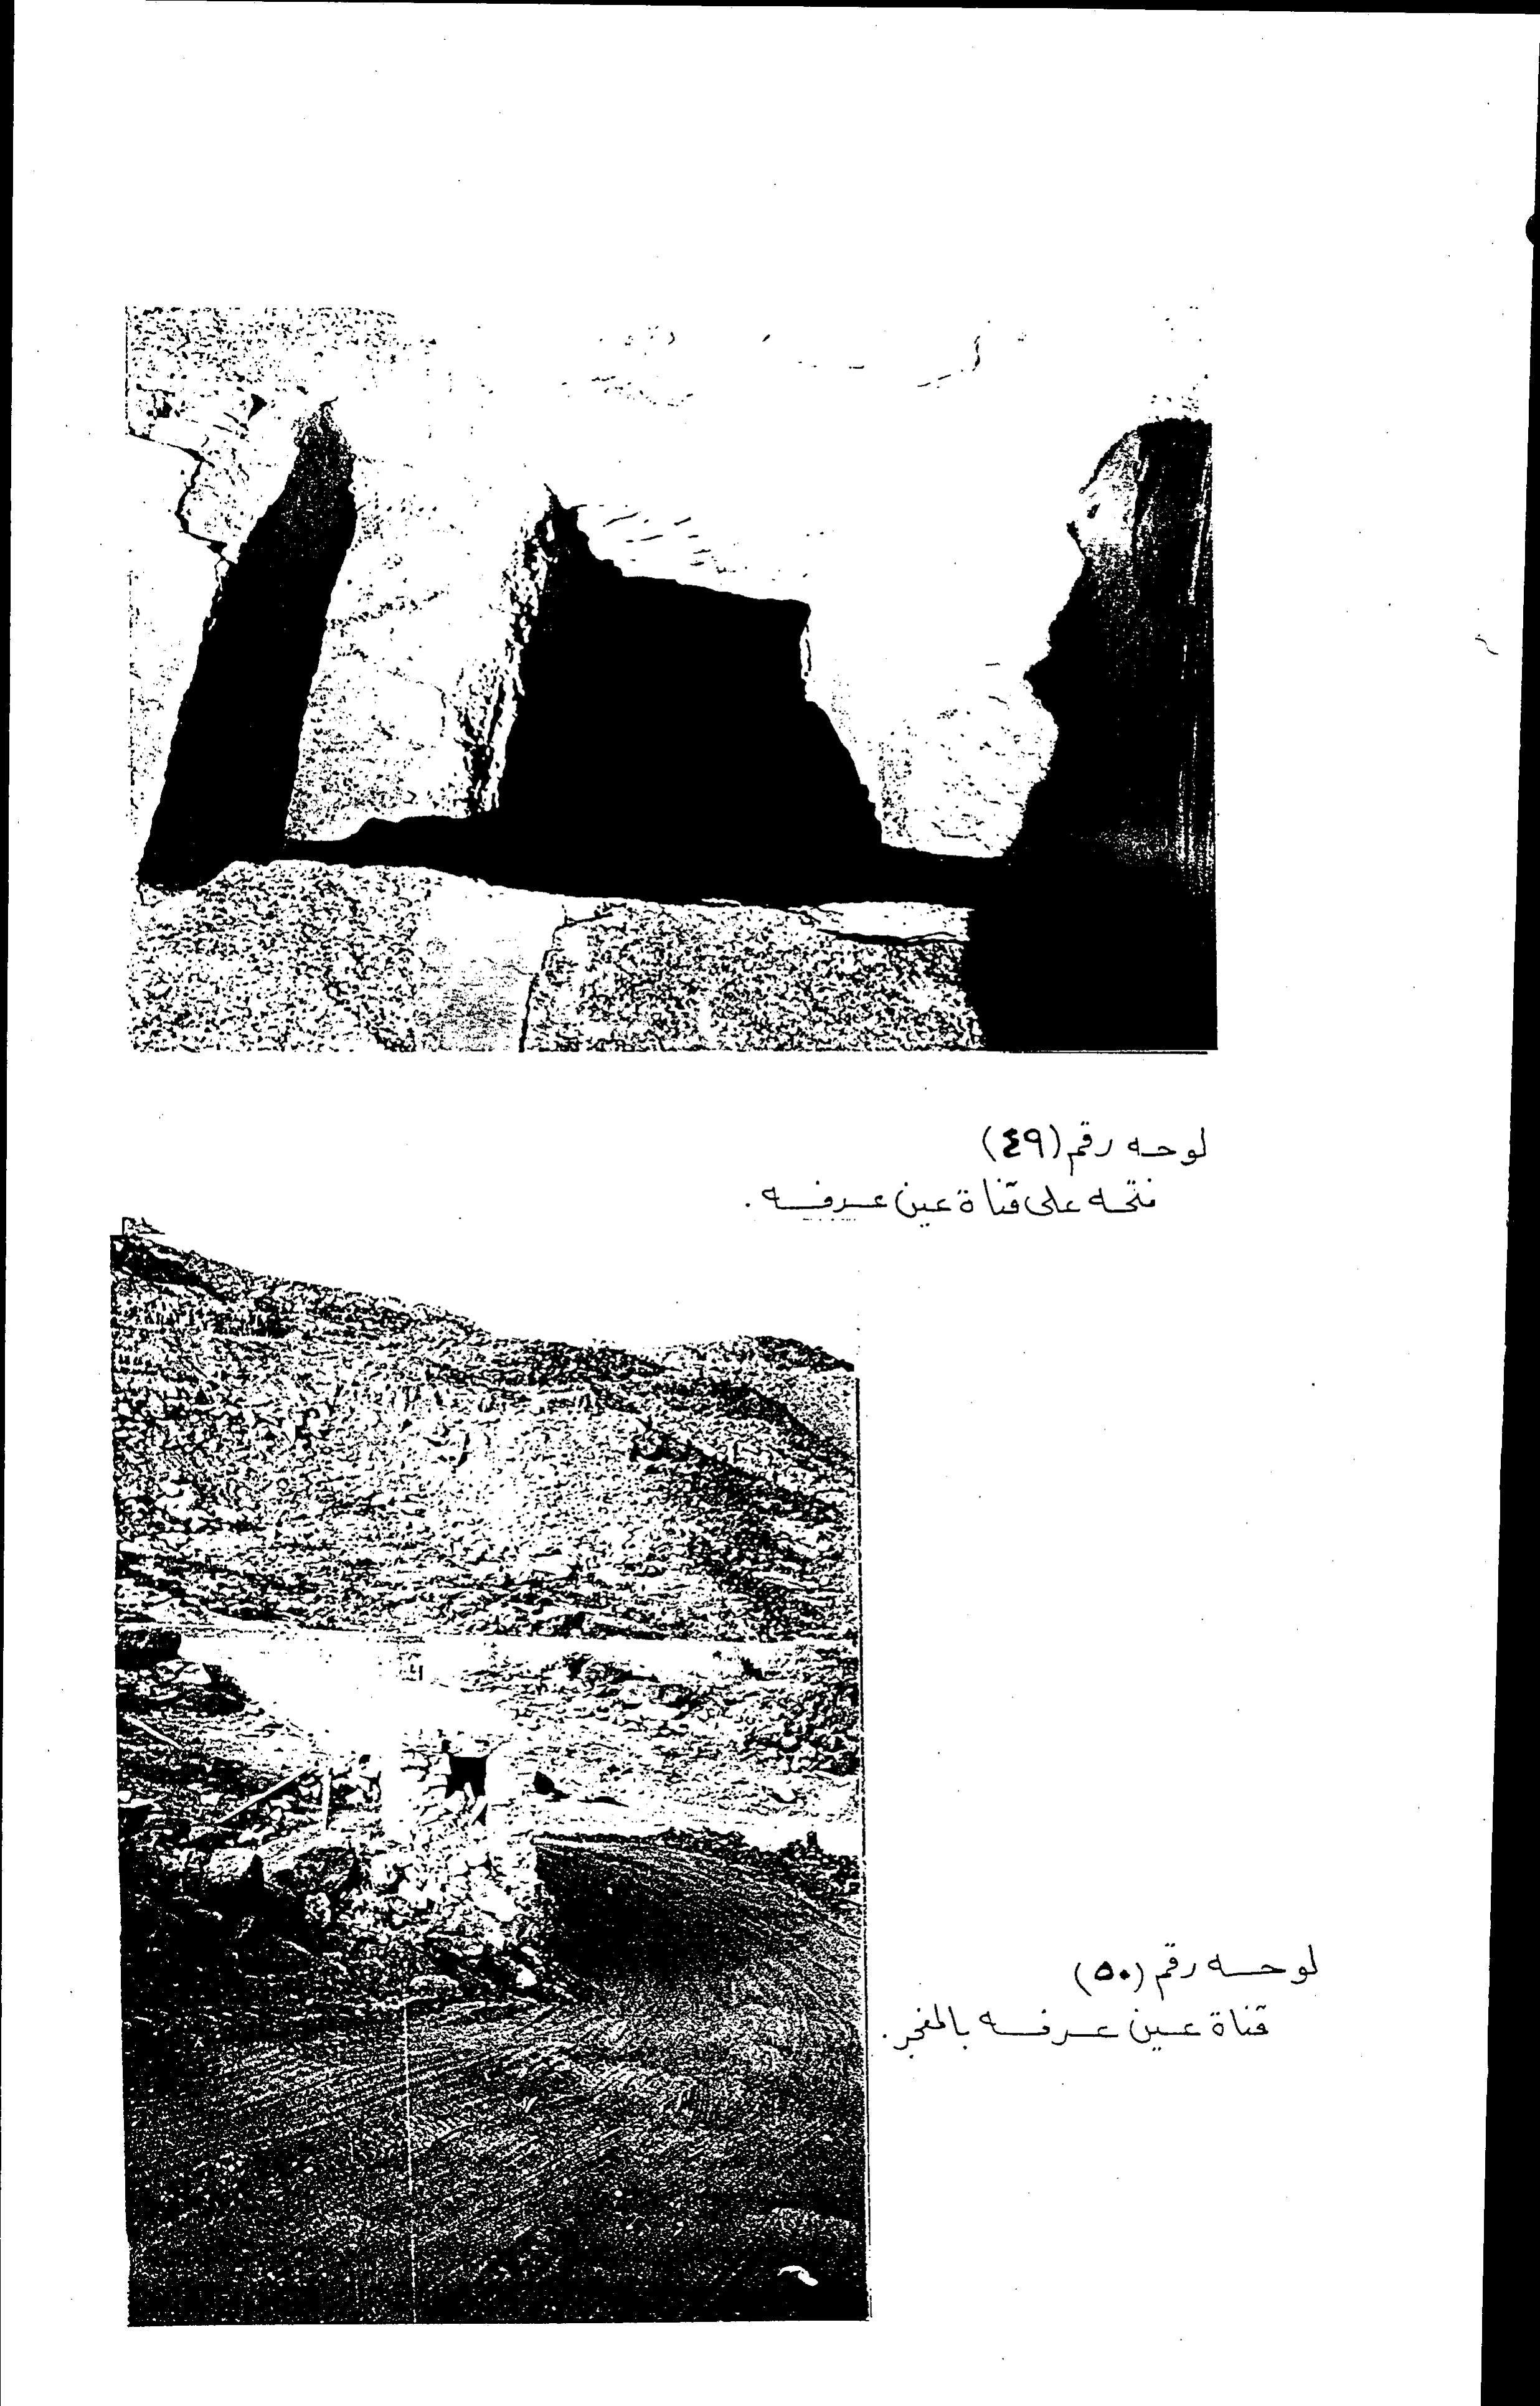 لوحه رقم (٤٩)
فتحه على قناة عين عرفه .
لوحه رقم (٥٠)
قناة عين عرفه بالمفجر .